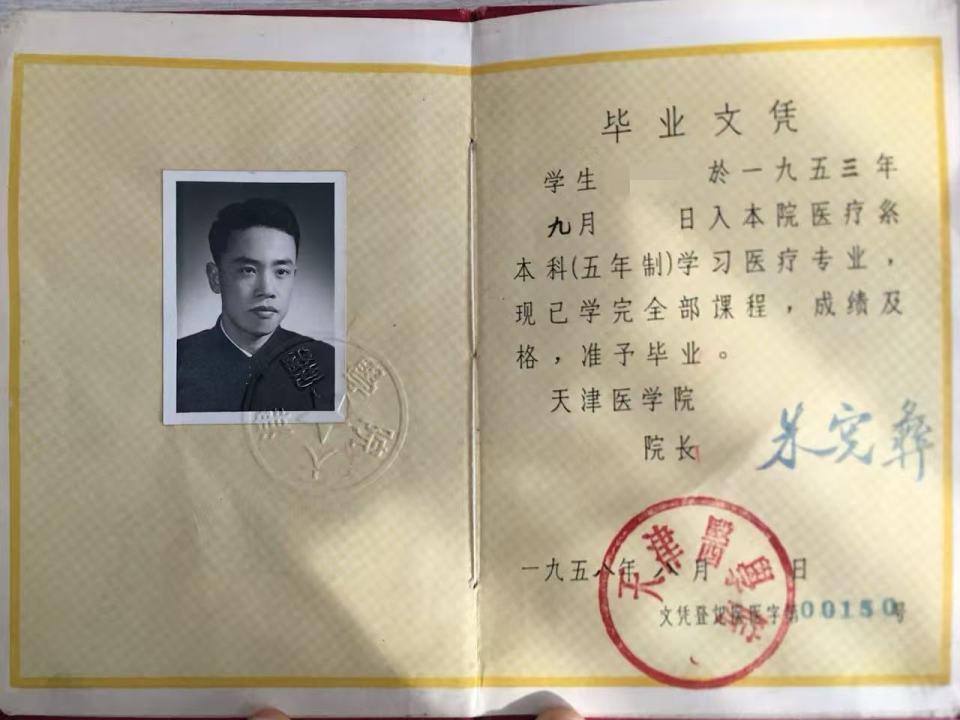 毕业文凭
学生 於一九五三年
九月 日入本院医疗系
本科(五年制)学习医疗专业，
现已学完全部课程，成绩及
格，准予毕业。
天津医学院
院长 朱宪彝
一九五八年八月 日
天津醫學院
文凭登记医医字第00150号